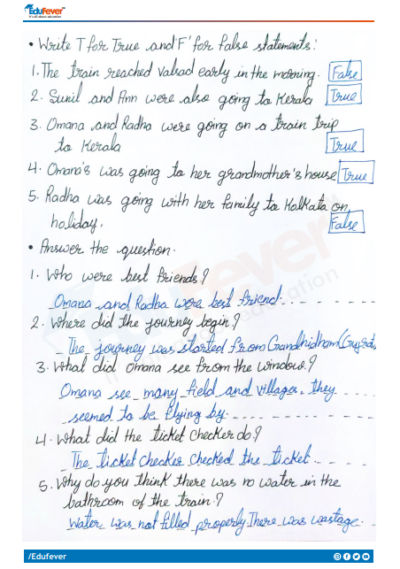 EduFever
• Write T for True and F' for false statements:
1. The train reached Valsad early in the morning. False
2. Sunil and Ann were also going to Kerala True
3. Omana and Radha were going on a train trip
to Kerala True
4. Omana's was going to her grandmother's house True
5. Radha was going with her family to Kolkata on
holiday. False
• Answer the question.
1. Who were best friends?
Omana and Radha were best friend.
2. Where did the journey begin?
The journey was started from Gandhidham (Gujrat)
3. What did Omana see from the window?
Omana see many field and villages. they
seemed to be flying by.
4. What did the ticket checker do?
The ticket checker checked the ticket
5. Why do you think there was no water in the
bathroom of the train?
Water was not filled properly. There was wastage.
/Edufever